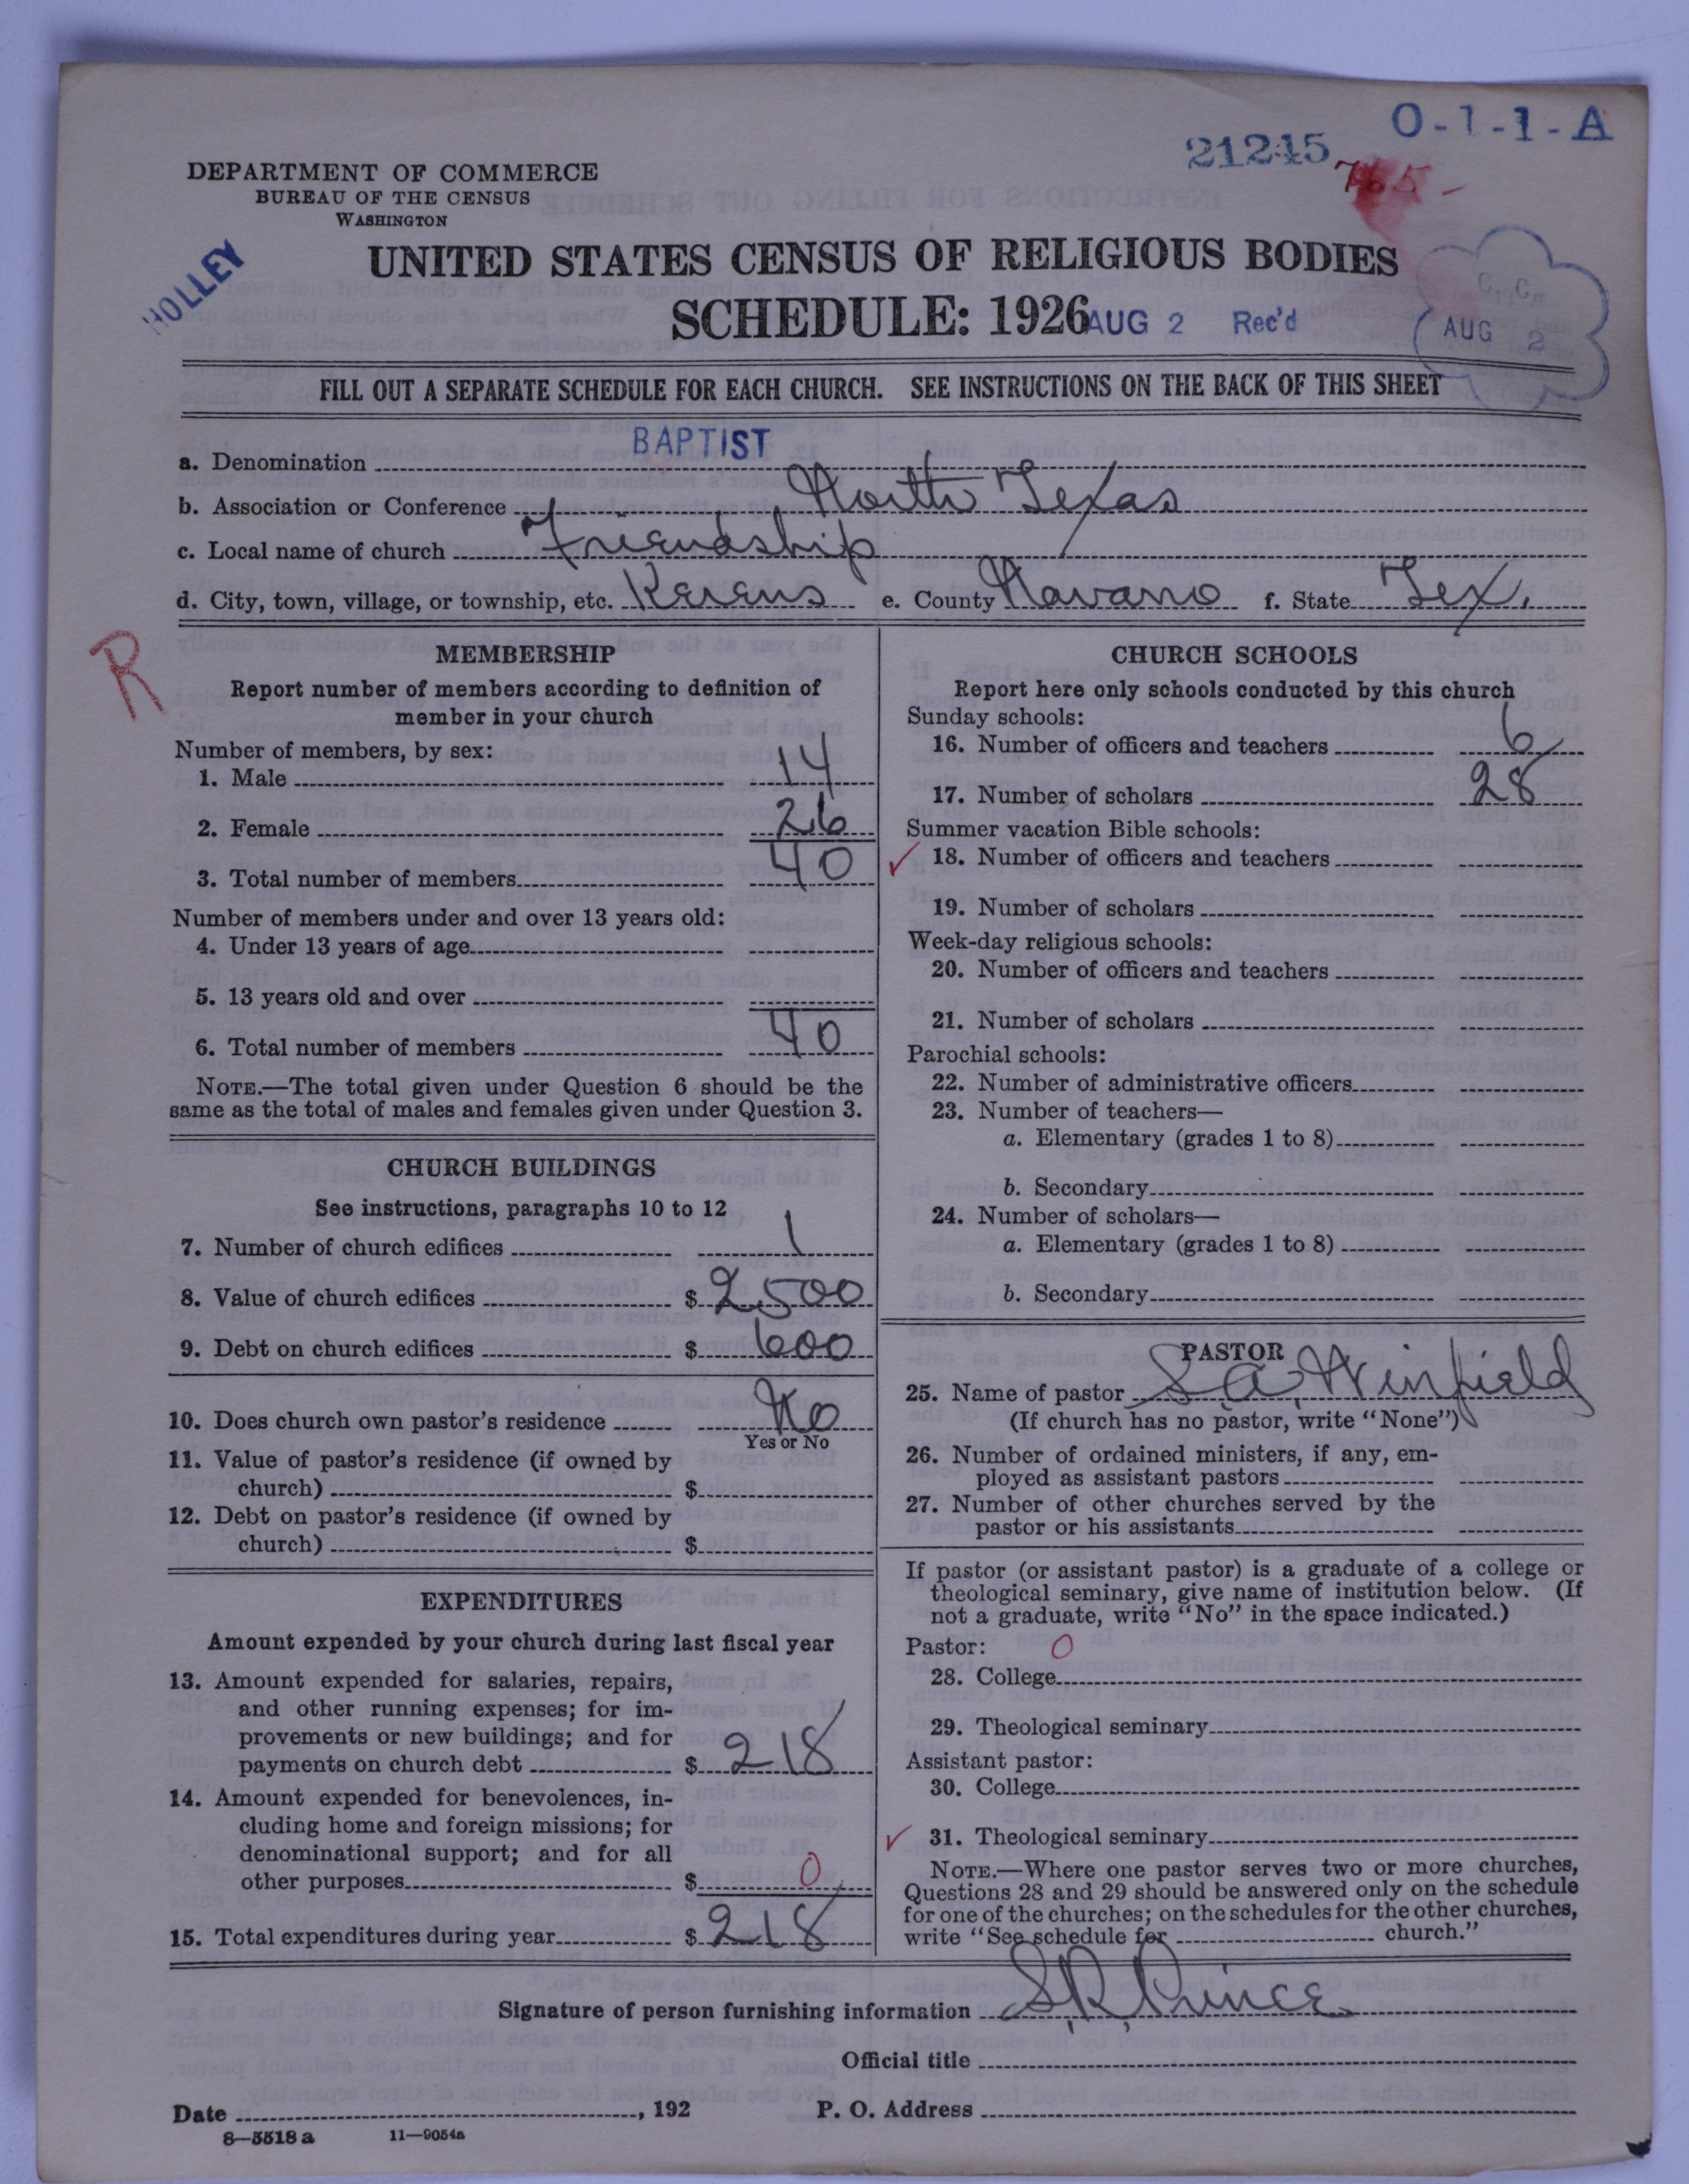 O-1-1-A
21245
765-
DEPARTMENT OF COMMERCE
BUREAU OF THE CENSUS
WASHINGTON
HOLLEY
UNITED STATES CENSUS OF RELIGIOUS BODIES
SCHEDULE: 1926 AUG 2 Rec'd
C.C.C.
AUG 2
FILL OUT A SEPARATE SCHEDULE FOR EACH CHURCH. SEE INSTRUCTIONS ON THE BACK OF THIS SHEET
a. Denomination BAPTIST
b. Association or Conference North Texas
c. Local name of church Friendship
d. City, town, village, or township, etc. Kerens e. County Navarro f. State Tex.
R
MEMBERSHIP
Report number of members according to definition of
member in your church
Number of members, by sex:
1. Male 14
2. Female 26
3. Total number of members 40
Number of members under and over 13 years old:
4. Under 13 years of age
5. 13 years old and over
6. Total number of members 40
NOTE.—The total given under Question 6 should be the
same as the total of males and females given under Question 3.
CHURCH BUILDINGS
See instructions, paragraphs 10 to 12
7. Number of church edifices 1
8. Value of church edifices $ 2500
9. Debt on church edifices $ 600
10. Does church own pastor's residence No
Yes or No
11. Value of pastor's residence (if owned by
church) $
12. Debt on pastor's residence (if owned by
church) $
EXPENDITURES
Amount expended by your church during last fiscal year
13. Amount expended for salaries, repairs,
and other running expenses; for im-
provements or new buildings; and for
payments on church debt $ 218
14. Amount expended for benevolences, in-
cluding home and foreign missions; for
denominational support; and for all
other purposes $ 0
15. Total expenditures during year $ 218
CHURCH SCHOOLS
Report here only schools conducted by this church
Sunday schools:
16. Number of officers and teachers 6
17. Number of scholars 28
Summer vacation Bible schools:
18. Number of officers and teachers
19. Number of scholars
Week-day religious schools:
20. Number of officers and teachers
21. Number of scholars
Parochial schools:
22. Number of administrative officers
23. Number of teachers—
a. Elementary (grades 1 to 8)
b. Secondary
24. Number of scholars—
a. Elementary (grades 1 to 8)
b. Secondary
PASTOR
25. Name of pastor S. A. Winfield
(If church has no pastor, write "None")
26. Number of ordained ministers, if any, em-
ployed as assistant pastors
27. Number of other churches served by the
pastor or his assistants
If pastor (or assistant pastor) is a graduate of a college or
theological seminary, give name of institution below. (If
not a graduate, write "No" in the space indicated.)
Pastor: 0
28. College
29. Theological seminary
Assistant pastor:
30. College
31. Theological seminary
NOTE.—Where one pastor serves two or more churches,
Questions 28 and 29 should be answered only on the schedule
for one of the churches; on the schedules for the other churches,
write "See schedule for church."
Signature of person furnishing information S. R. Prince
Official title
Date , 192 P. O. Address
8—5518 a 11—9054a